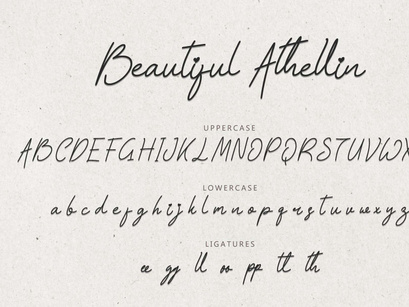 Beautiful Athellin
UPPERCASE
ABCDEFGHIJKLMNOPQRSTUVWX
LOWERCASE
abcdefghijklmnopqrstuvwxyz
LIGATURES
ee gg ll oo pp tt th